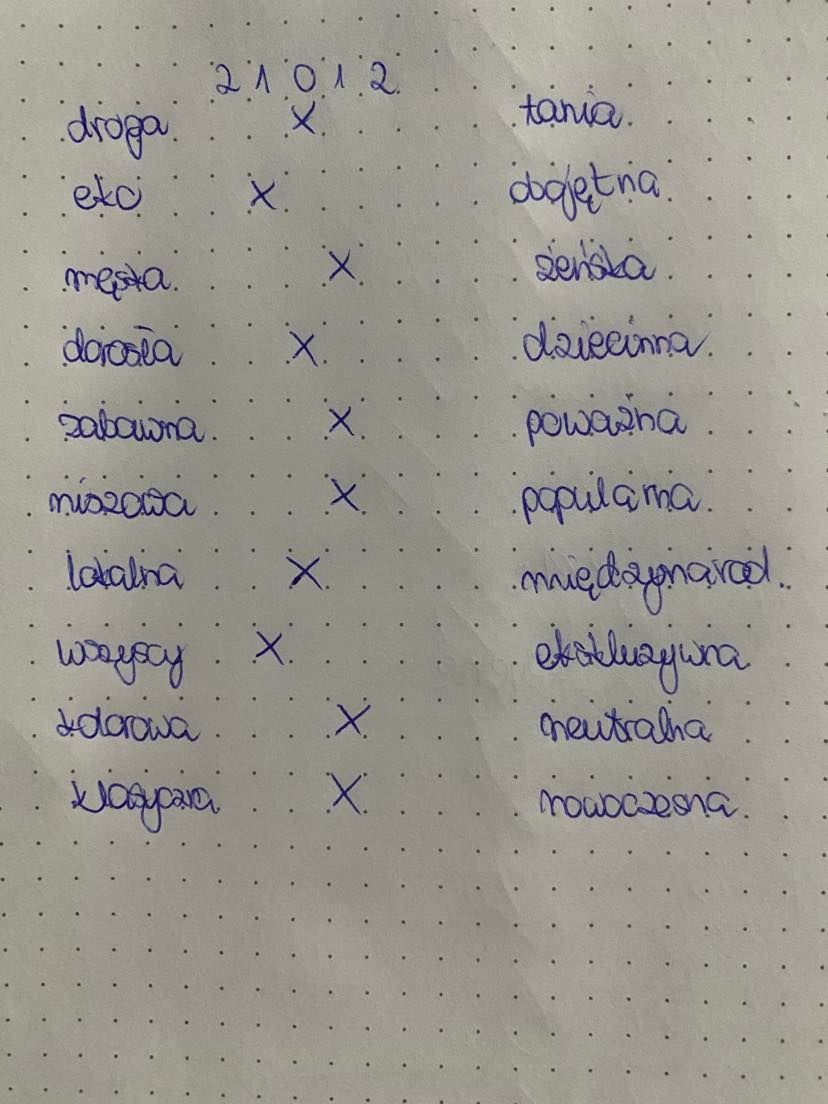 2 1 0 1 2
droga X tania
eko X obojętna
męska X żeńska
dorosła X dziecinna
zabawna X poważna
niszowa X popularna
lokalna X międzynarod.
wszyscy X ekskluzywna
zdrowa X neutralna
klasyczna X nowoczesna